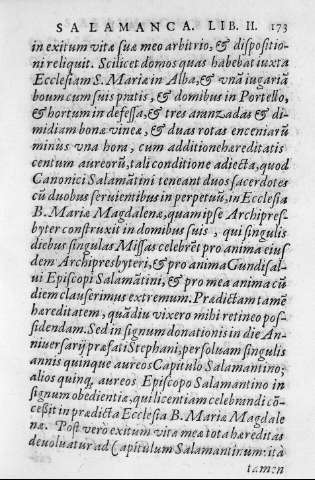 SALAMANCA. LIB. II. 173
in exitum vitæ suæ meo arbitrio, & dispositio-
ni reliquit. Scilicet domos quas habebat iuxta
Ecclesiam S. Mariæ in Alba, & vnã iugariã
boum cum suis pratis, & domibus in Portello,
& hortum in defessa, & tres aranzadas & di-
midiam bonæ vineæ, & duas rotas enceniarũ
minùs vna hora, cum additione hæreditatis
centum aureorũ, tali conditione adiecta, quod
Canonici Salamãtini teneant duos sacerdotes
cũ duobus seruientibus in perpetuũ, in Ecclesia
B. Mariæ Magdalenæ, quam ipse Archipres-
byter construxit in domibus suis, qui singulis
diebus singulas Missas celebrẽt pro anima eius
dem Archipresbyteri, & pro anima Gundisal-
ui Episcopi Salamãtini, & pro mea anima cũ
diem clauserimus extremum. Prædictam tamẽ
hæreditatem, quãdiu vixero mihi retineo pos-
sidendam. Sed in signum donationis in die An-
niuersarij præfati Stephani, persoluam singulis
annis quinque aureos Capitulo Salamantino;
alios quinq; aureos Episcopo Salamantino in
signum obedientiæ, qui licentiam celebrandi cõ-
cessit in prædicta Ecclesia B. Mariæ Magdale
næ. Post verò exitum vitæ meæ tota hæreditas
deuoluatur ad Capitulum Salamantinum: ità
tamen